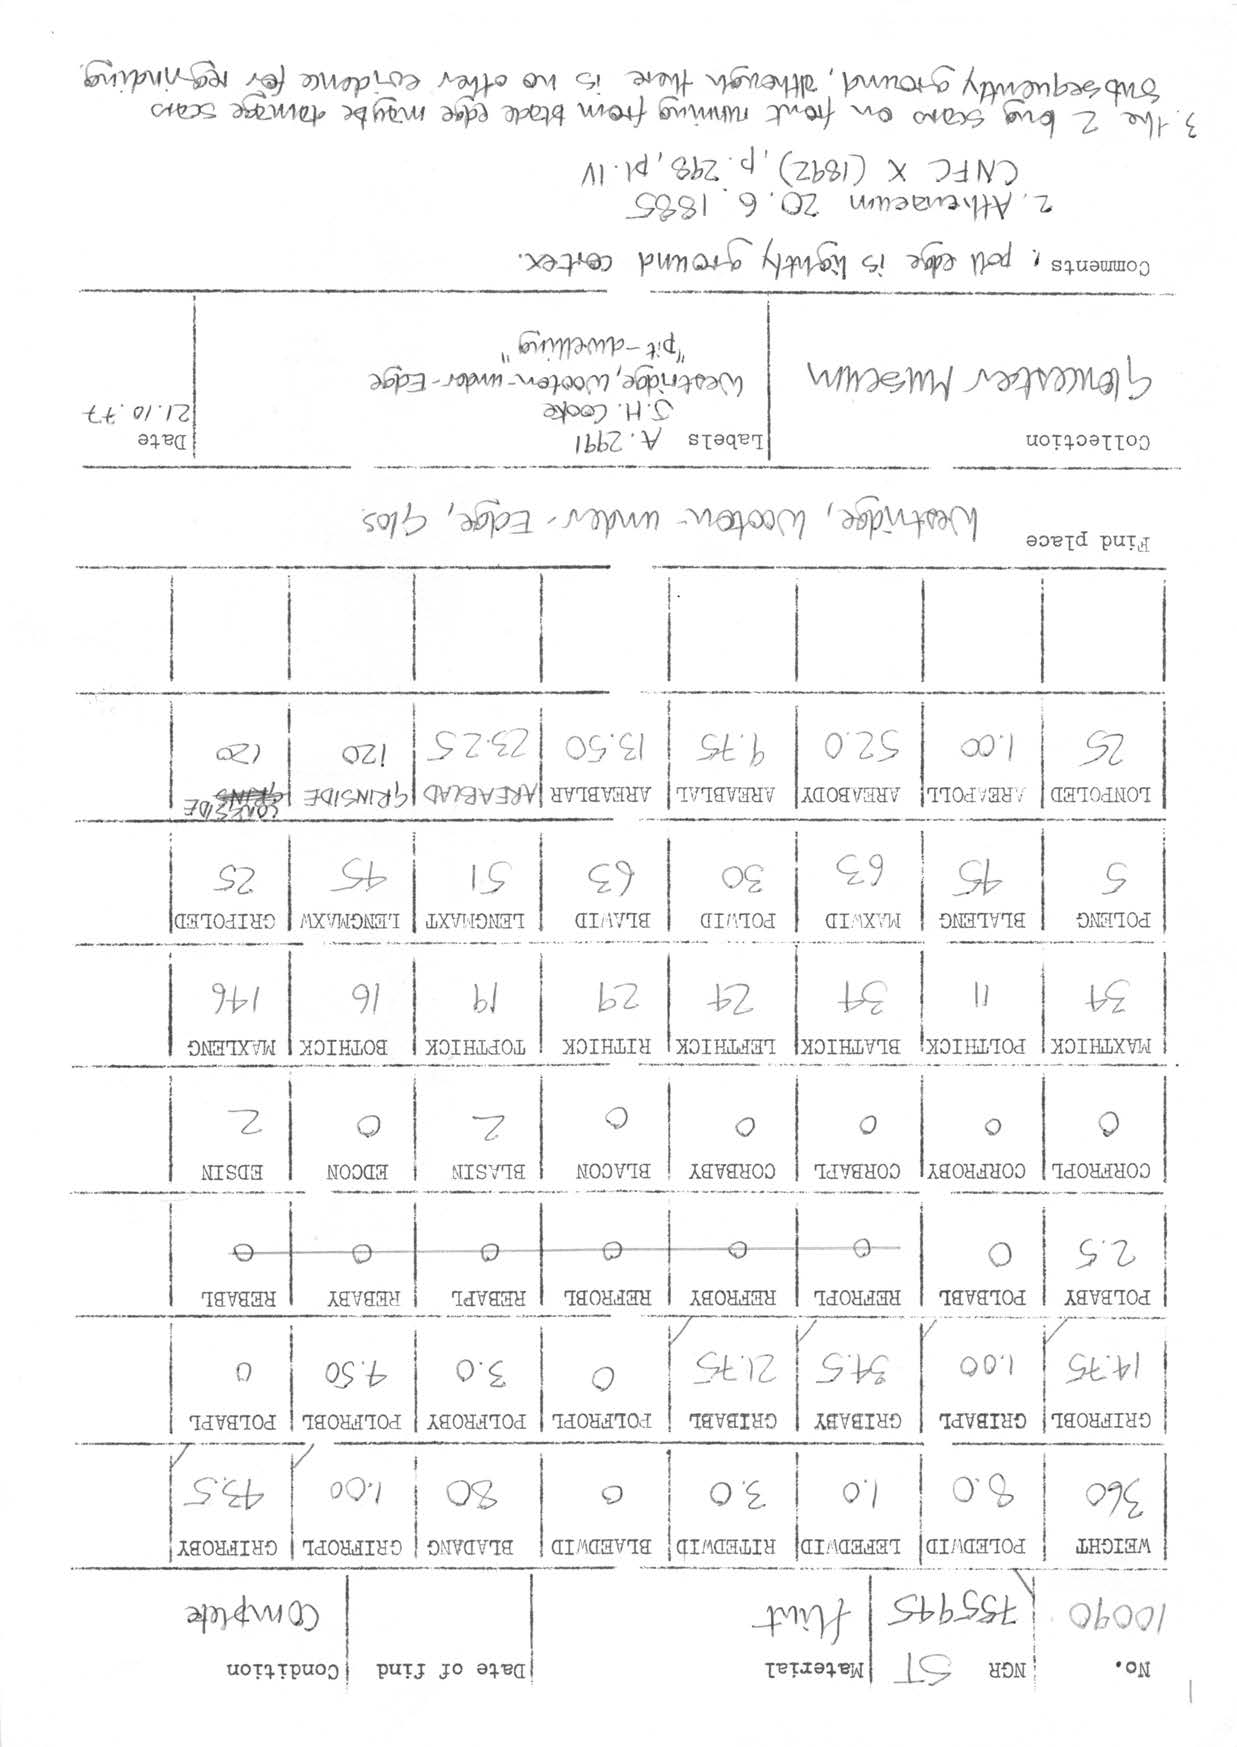 1
No. NGR ST Material Date of find Condition
10090 755945 flint Complete
WEIGHT POLEDWID LEFEDWID RITEDWID BLAEDWID BLADANG GRIFROPL GRIFROBY
360 8.0 1.0 3.0 0 80 1.00 43.5
GRIFROBL GRIBAPL GRIBABY GRIBABL POLFROPL POLFROBY POLFROBL POLBAPL
14.75 1.00 34.5 21.75 0 3.0 4.50 0
POLBABY POLBABL REFROPL REFROBY REFROBL REBAPL REBABY REBABL
2.5 0 0 0 0 0 0 0
CORFROPL CORFROBY CORBAPL CORBABY BLACON BLASIN EDCON EDSIN
0 0 0 0 0 2 0 2
MAXTHICK POLTHICK BLATHICK LEFTHICK RITHICK TOPTHICK BOTHICK MAXLENG
34 11 34 24 29 19 16 146
POLENG BLALENG MAXWID POLWID BLAWID LENGMAXT LENGMAXW GRIPOLED
5 45 63 30 63 51 45 25
LONPOLED AREAPOLL AREABODY AREABLAL AREABLAR AREABLAD GRINSIDE LONGSIDE
25 1.00 52.0 9.75 13.50 23.25 120 120
Find place Westridge, Wooton-under-Edge, Glos.
Collection Labels A.2991 Date
J.H. Cooke 21.10.77
Gloucester Museum Westridge, Wooton-under-Edge
"pit-dwelling"
Comments 1. poll edge is lightly ground cortex.
2. Athenaeum 20.6.1885
CNFC X (1892), p. 298, pl. IV
3. The 2 long scars on front running from blade edge maybe damage scars
subsequently ground, although there is no other evidence for regrinding.